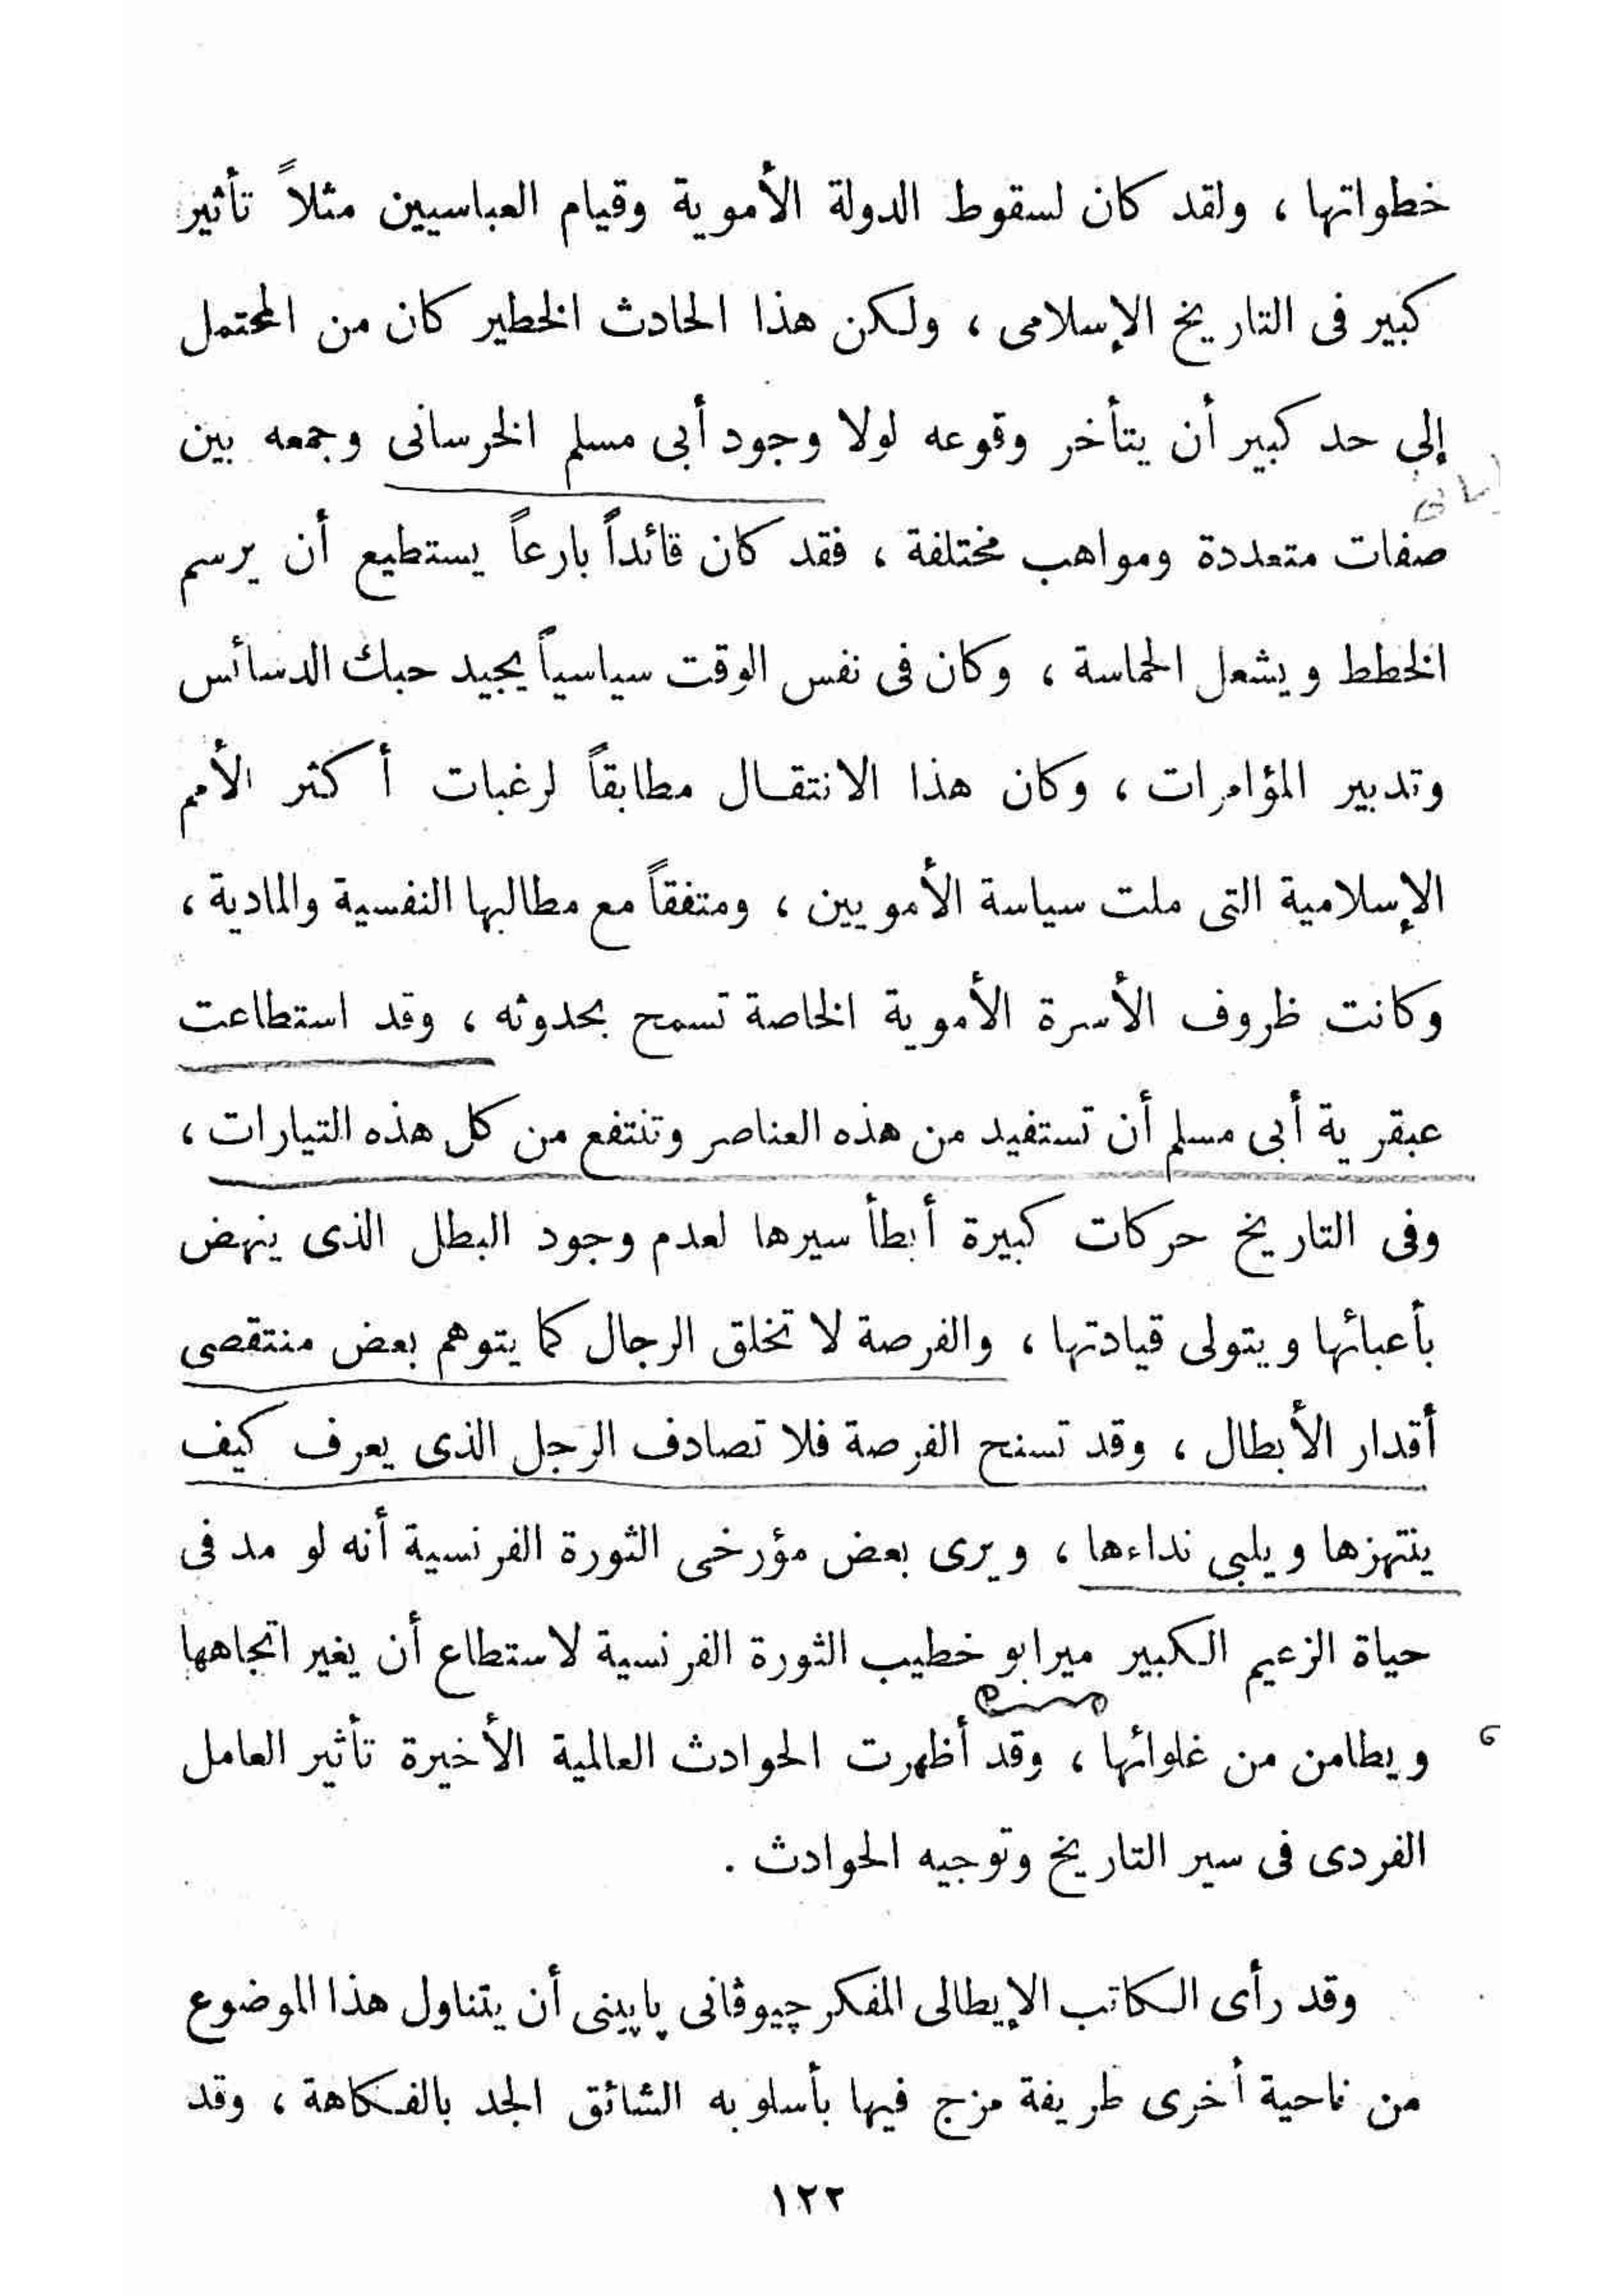 خطواتها ، ولقد كان لسقوط الدولة الأموية وقيام العباسيين مثلاً تأثير
كبير فى التاريخ الإسلامى ، ولكن هذا الحادث الخطير كان من المحتمل
إلى حد كبير أن يتأخر وقوعه لولا وجود أبى مسلم الخرسانى وجمعه بين
صفات متعددة ومواهب مختلفة ، فقد كان قائداً بارعاً يستطيع أن يرسم
الخطط ويشعل الحماسة ، وكان فى نفس الوقت سياسياً يجيد حبك الدسائس
وتدبير المؤامرات ، وكان هذا الانتقال مطابقاً لرغبات أكثر الأمم
الإسلامية التى ملت سياسة الأمويين ، ومتفقاً مع مطالبها النفسية والمادية ،
وكانت ظروف الأسرة الأموية الخاصة تسمح بحدوثه ، وقد استطاعت
عبقرية أبى مسلم أن تستفيد من هذه العناصر وتنتفع من كل هذه التيارات ،
وفى التاريخ حركات كبيرة أبطأ سيرها لعدم وجود البطل الذى ينهض
بأعبائها ويتولى قيادتها ، والفرصة لا تخلق الرجال كما يتوهم بعض منتقصى
أقدار الأبطال ، وقد تسنح الفرصة فلا تصادف الرجل الذى يعرف كيف
ينتهزها ويلبى نداءها ، ويرى بعض مؤرخى الثورة الفرنسية أنه لو مد فى
حياة الزعيم الكبير ميرابو خطيب الثورة الفرنسية لاستطاع أن يغير اتجاهها
ويطامن من غلوائها ، وقد أظهرت الحوادث العالمية الأخيرة تأثير العامل
الفردى فى سير التاريخ وتوجيه الحوادث .
وقد رأى الكاتب الإيطالى المفكر چيوڤانى پاپينى أن يتناول هذا الموضوع
من ناحية أخرى طريفة مزج فيها بأسلوبه الشائق الجد بالفكاهة ، وقد
١٢٢